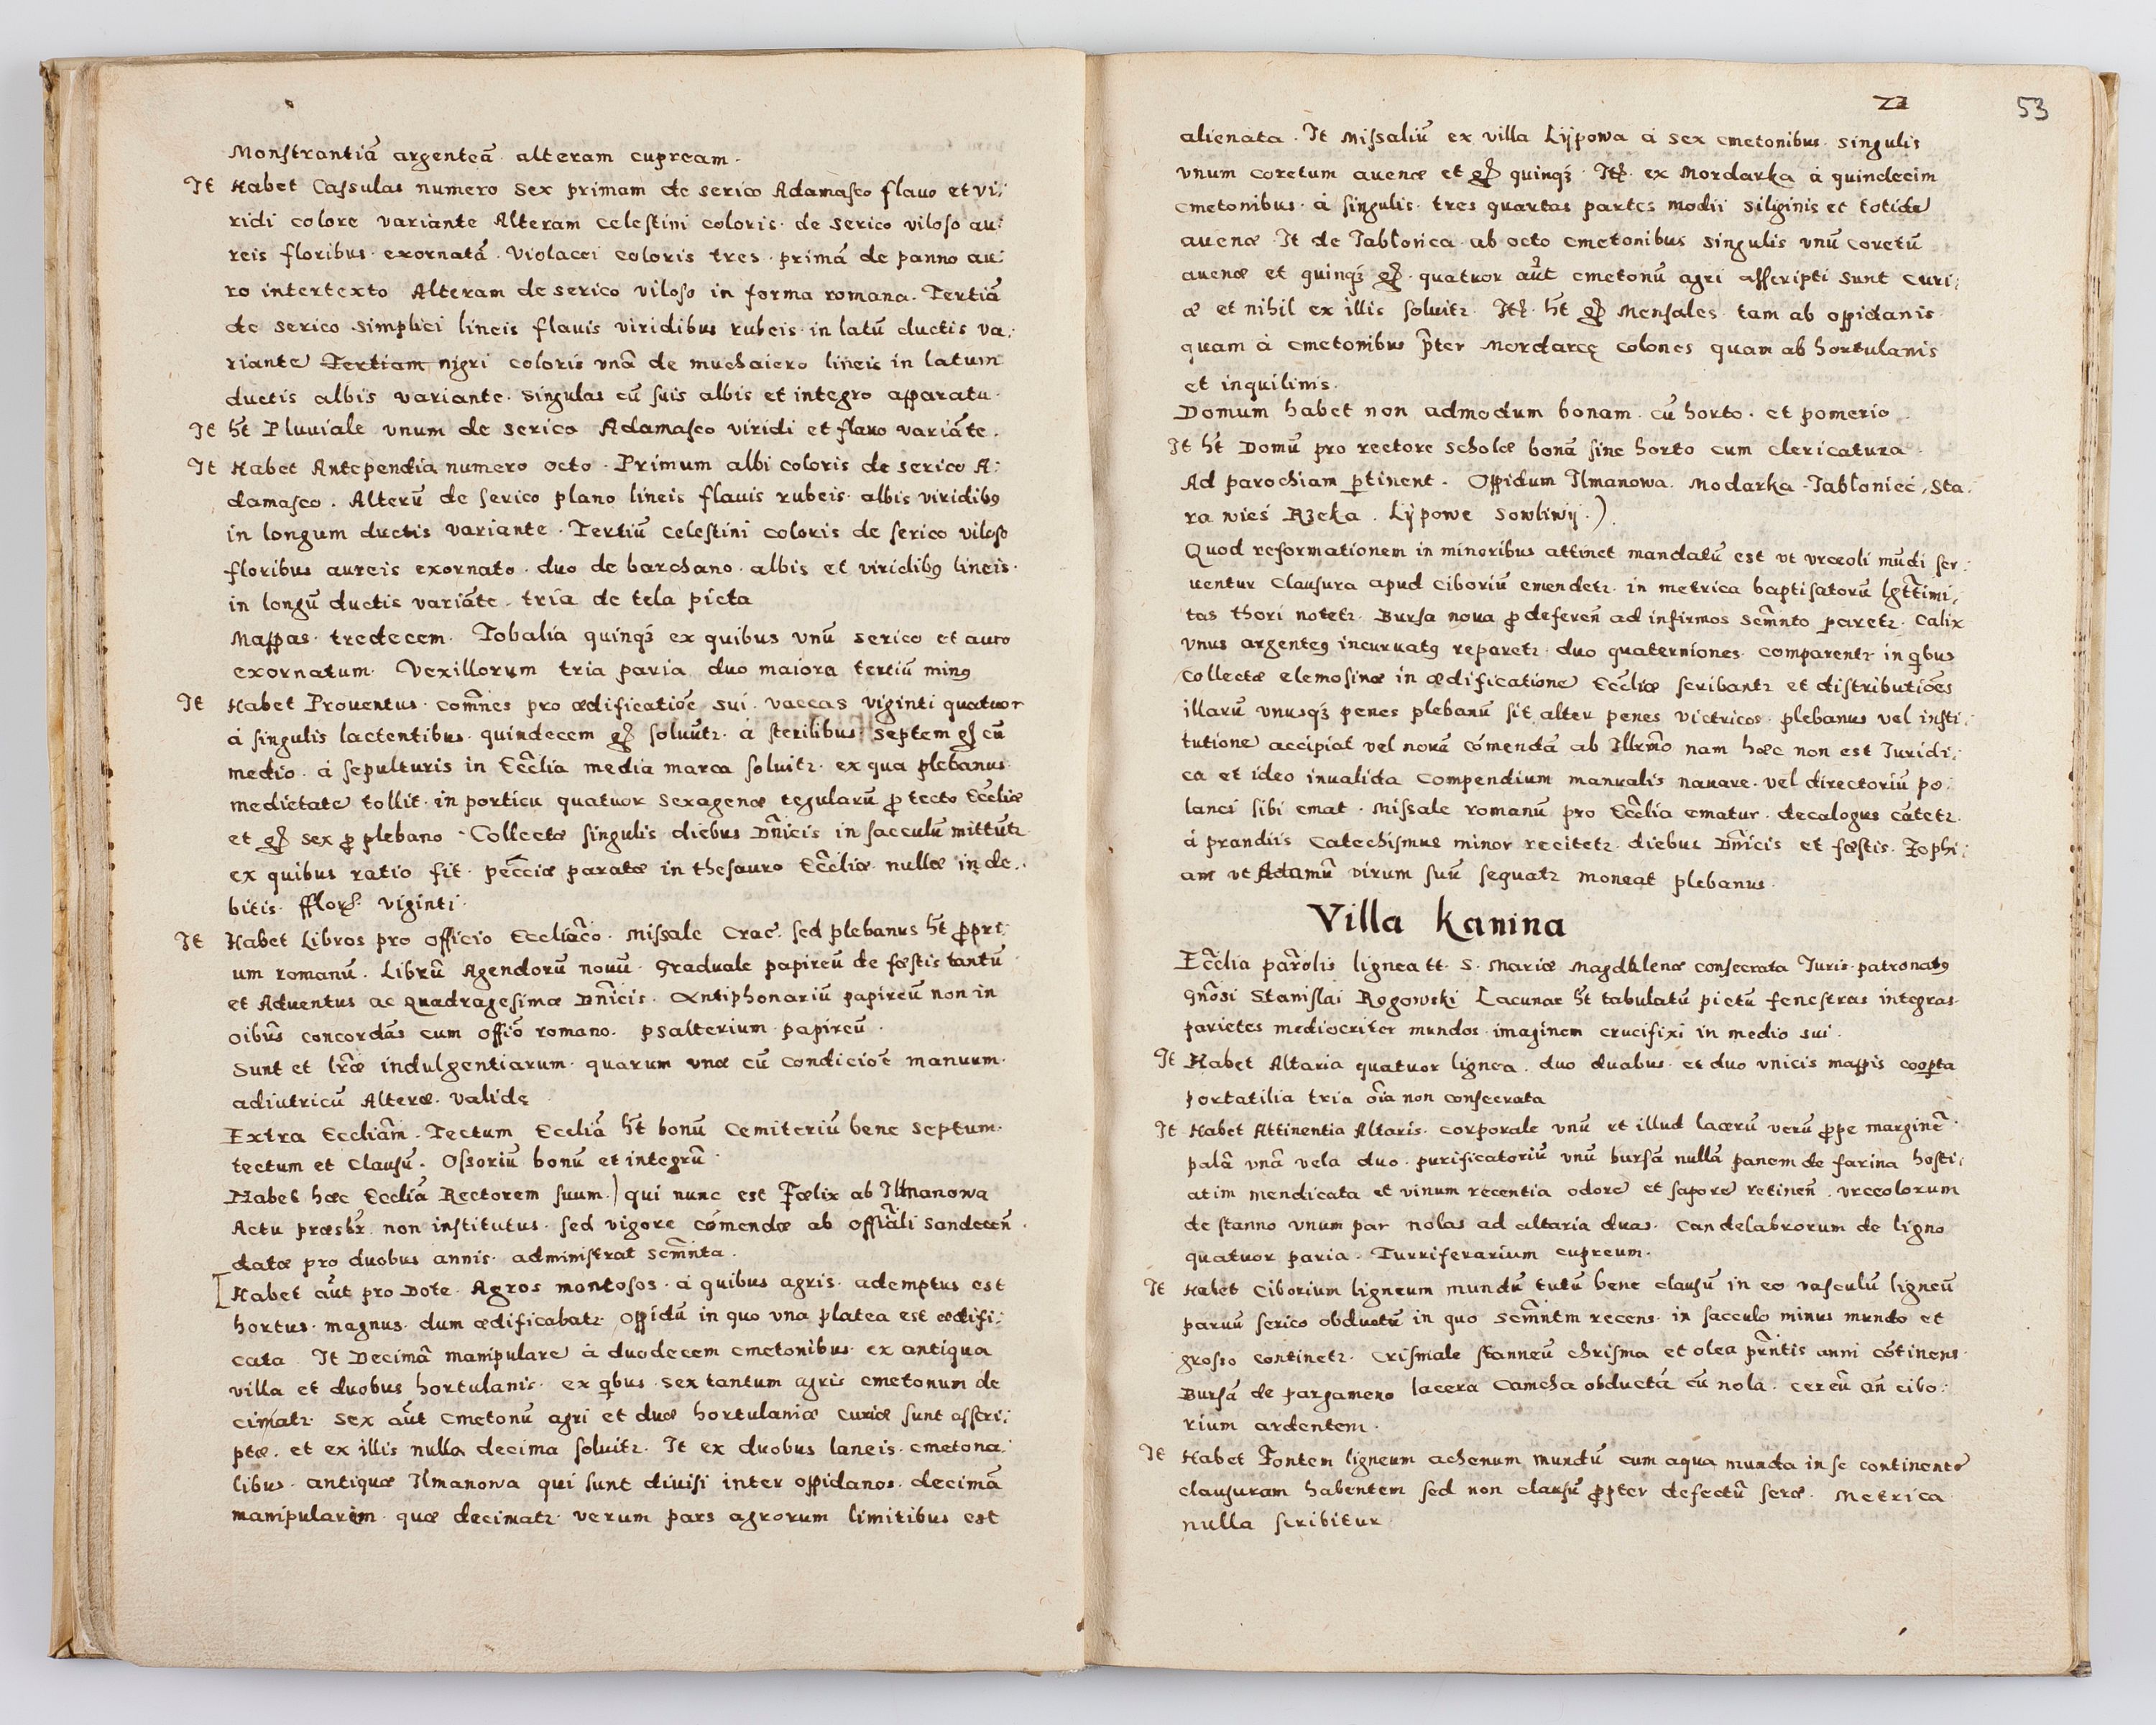 Monstrantiā argenteā alteram cupream.
It Habet Casulas numero sex primam de serico Adamasco flauo et vi:
ridi colore variante Alteram celestini coloris de serico viloso au:
reis floribus exornatā. Violacei coloris tres primā de panno au:
ro intertexto Alteram de serico viloso in forma romana. Tertiā
de serico simplici lineis flauis viridibus rubeis in latū ductis va:
riante Tertiam nigri coloris vnā de muchaiero lineis in latum
ductis albis variante. singulas cū suis albis et integro apparatu.
It ht Pluuiale vnum de serico Adamasco viridi et flauo variāte.
It Habet Antependia numero octo. Primum albi coloris de serico A:
damasco. Alterū de serico plano lineis flauis rubeis albis viridibꝰ
in longum ductis variante. Tertiū celestini coloris de serico viloso
floribus aureis exornato. duo de barchano albis et viridibꝰ lineis.
in longū ductis variāte. tria de tela picta
Mappas tredecem. Tobalia quinqꝫ ex quibus vnū serico et auro
exornatum. Vexillorum tria paria duo maiora tertiū minꝰ
It Habet Prouentus com̄nes pro ædificatiōe sui. vaccas viginti quatuor
à singulis lactentibus quindecem gꝛ soluūtꝛ. à sterilibus septem gꝛ cū
medio. à sepulturis in Eccłia media marca soluitꝛ. ex qua plebanus
medietatē tollit in porticu quatuor sexagenæ tegularū ꝓ tecto Eccłiæ
et gꝛ sex ꝓ plebano. Collectæ singulis diebus Dn̄icis in sacculū mittūtꝛ
ex quibus ratio fit. pec̄ciæ paratæ in thesauro Eccłiæ nullæ in de:
bitis fflor. viginti.
It Habet Libros pro officio Eccliāco. Missale Crac. sed plebanus ht ꝓpri:
um romanū. Librū Agendorū nouū. Graduale papireū de fæstis tantū
et Aduentus ac quadragesimæ Dn̄icis. Antiphonariū papireū non in
oībus concordās cum offīo romano. psalterium papireū.
Sunt et lr̄æ indulgentiarum. quarum vnæ cū condiciōe manuum.
adiutricū Alteræ validę
Extra Eccliām. Tectum Ecclīa ht bonū Cemiteriū bene septum.
tectum et clausū. Ossoriū bonū et integrū.
Habet hæc Ecclīa Rectorem suum.) qui nunc est Fœlix ab Ilmanowa
Actu præsbr̄. non institutus. sed vigore cōmendæ ab offiāli Sandecen̄.
datæ pro duobus annis. administrat scm̄nta.
[Habet aūt pro Dote. Agros montosos. à quibus agris ademptus est
hortus magnus dum ædificabatꝛ oppidū in quo vna platea est ædifi:
cata It Decimā manipularē à duodecem cmetonibus ex antiqua
villa et duobus hortulanis. ex qbus sex tantum agris cmetonum de
cimatꝛ. sex aūt cmetonū agri et duæ hortulaniæ curiæ sunt asscri:
ptæ. et ex illis nulla decima soluitꝛ. It ex duobus laneis cmetona:
libus antiquæ Ilmanowa qui sunt diuisi inter oppidanos. decimā
manipularem quæ decimatꝛ verum pars agrorum limitibus est
22
53
alienata. It Missaliū ex villa Lÿpowa à sex cmetonibus singulis
vnum coretum auenæ et gꝛ quinqꝫ. It. ex Mordarka à quindecim
cmetonibus à singulis tres quartas partes modii siliginis et totidē
auenæ. It de Jabłonica ab octo cmetonibus singulis vnū coretū
auenæ et quinqꝫ gꝛ. quatuor aūt cmetonū agri asscripti sunt curi:
æ et nihil ex illis soluitꝛ. It. ht gꝛ Mensales tam ab oppidanis
quam à cmetonibus p̄ter Mordarcę colones quam ab hortulanis
et inquilinis.
Domum habet non admodum bonam. cū horto. et pomerio
It ht Domū pro rectore scholæ bonā sine horto cum clericatura.
Ad parochiam ptinent. Oppidum Ilmanowa. Modarka. Jabłoniec, Sta:
ra wieś Rzeka. Lÿpowe Sowliwÿ.)
Quod reformationem in minoribus attinet mandatū est vt vrceoli mūdi ser:
uentur Clausura apud ciboriū emendetꝛ. in metrica baptisatorū lgtt̄imi:
tas thori notetꝛ. Bursa noua ꝓ deferen̄ ad infirmos scm̄nto paretꝛ. Calix
vnus argenteꝰ incuruatꝰ reparetꝛ. duo quaterniones comparentꝛ in qbus
collectæ elemosinæ in ædificationē Eccłiæ scribantꝛ et distributiōes
illarū vnusqꝫ penes plebanū sit alter penes victricos. plebanus vel insti:
tutionē accipiat vel nouā cōmendā ab Illrm̄o nam hæc non est Juridi:
ca et ideo inualida compendium manualis nauare. vel directoriū po:
lanci sibi emat. Missale romanū pro Eccłia ematur. decalogus cātetꝛ.
à prandiis catechismus minor recitetꝛ. diebus Dn̄icis et fæstis. Zophi:
am vt Adamū virum suū sequatꝛ moneat plebanus.
Villa Kanina
Eccłia parōlis lignea tt. S. Mariæ Magdalenæ consecrata Juris patronatꝰ
Gnōsi Stanislai Rogowski Lacunar ht tabulatū pictū fenestras integras.
parietes mediocriter mundos. imaginem crucifixi in medio sui.
It Habet Altaria quatuor lignea. duo duabus. et duo vnicis mappis coopta
portatilia tria oīa non consecrata
It Habet Attinentia Altaris. corporale vnū et illud lacerū verū ꝓpe marginē.
palā vnā vela duo. purificatoriū vnū bursā nullā panem de farina hosti:
atim mendicata et vinum recentia odorē et saporē retinen̄. vrceolorum
de stanno vnum par nolas ad altaria duas. Candelabrorum de ligno
quatuor paria. Turriferarium cupreum.
It Habet Ciborium ligneum mundū tutū bene clausū in eo vasculū ligneū
paruū serico obductū in quo scm̄ntm recens. in sacculo minus mundo et
grosso continetꝛ. crismale stanneū chrisma et olea pr̄ntis anni cōtinens.
Bursā de pargameno lacera Camcha obductā cū nola. cereū an̄ cibo:
rium ardentem.
It Habet Fontem ligneum achenum mundū cum aqua munda in se continentē
clausuram habentem sed non clausū ꝓpter defectū seræ. Metrica
nulla scribitur